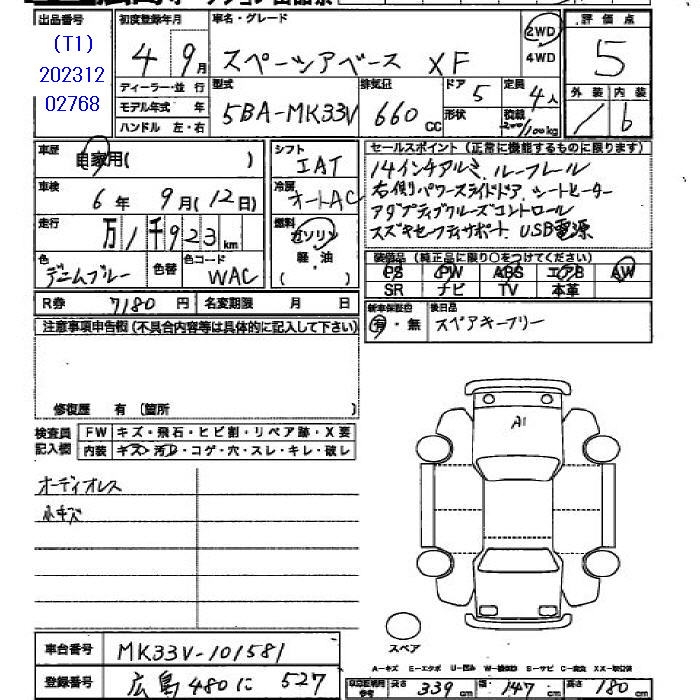 出品番号 初度登録年月 車名・グレード 評価点
(T1) 4 9月 スペーシアベース XF 2WD 4WD 5
202312
02768
ディーラー・並行 型式 排気量 ドア 定員 外装 内装
モデル年式 年 5BA-MK33V 660cc 5 4人 1 b
ハンドル 左・右 形状 積載 200/100kg
車歴 自家用( ) シフト IAT セールスポイント(正常に機能するものに限ります)
14インチアルミ、ルーフレール
車検 6年 9月(12日) 冷房 オートAC 右側パワースライドドア、シートヒーター
アダプティブクルーズコントロール
走行 万1千923km 燃料 ガソリン スズキセーフティサポート USB電源
軽・油
( )
色 デニムブルー 色替 色コード WAC 装備品(純正品に限り○をつけてください)
PS PW ABS エアB AW
SR ナビ TV 本革
R券 7180円 名変期限 月 日 新車保証書 有・無 後日品 スペアキーフリー
注意事項申告欄(不具合内容等は具体的に記入して下さい)
修復歴 有(箇所 )
検査員記入欄 FW キズ・飛石・ヒビ割・リペア跡・X要
内装 キズ・汚れ・コゲ・穴・スレ・キレ・破レ
A1
オーディオレス
小キズ
スペア
車台番号 MK33V-101581
A-キズ E-エクボ U-凹み
登録番号 広島 480 に 527
参考 長さ 339cm 幅 147cm 高さ 180cm